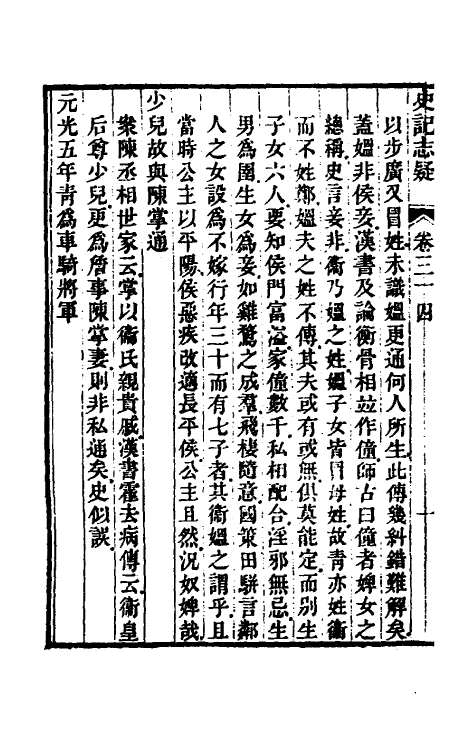 史記志疑 卷三十四 十
以步廣又冒姓未識媼更通何人所生此傳幾糾錯難解矣
蓋媼非侯妾漢書及論衡骨相竝作僮師古曰僮者婢女之
總稱史言妾非衞乃媼之姓媼子女皆冒母姓故靑亦姓衞
而不姓鄭媼夫之姓不傳其夫或有或無俱莫能定而別生
子女六人要知侯門富溢家僮數千私相配合淫邪無忌生
男爲圉生女爲妾如雞鶩之成羣飛棲隨意國策田駢言鄰
人之女設爲不嫁行年三十而有七子者其衞媼之謂乎且
當時公主以平陽侯惡疾改適長平侯公主且然況奴婢哉
少兒故與陳掌通
衆陳丞相世家云掌以衞氏親貴戚漢書霍去病傳云衞皇
后尊少兒更爲詹事陳掌妻則非私通矣史似誤
元光五年靑爲車騎將軍